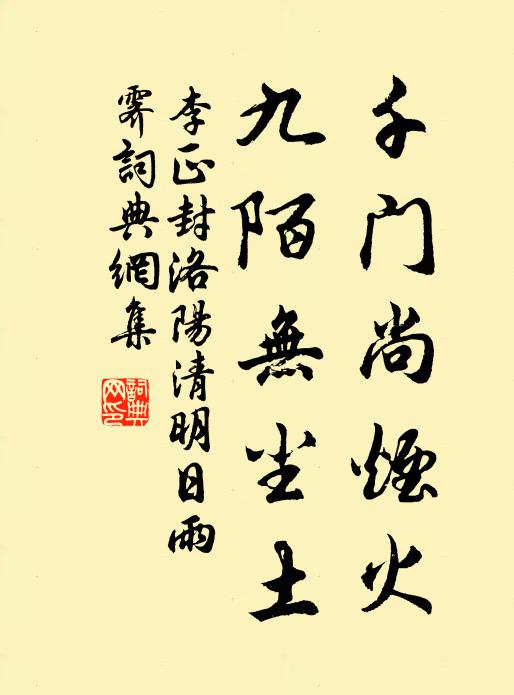 千门尚煙火
九陌無尘土
李正封洛陽清明日雨
霽詞典網集
詞典
网印